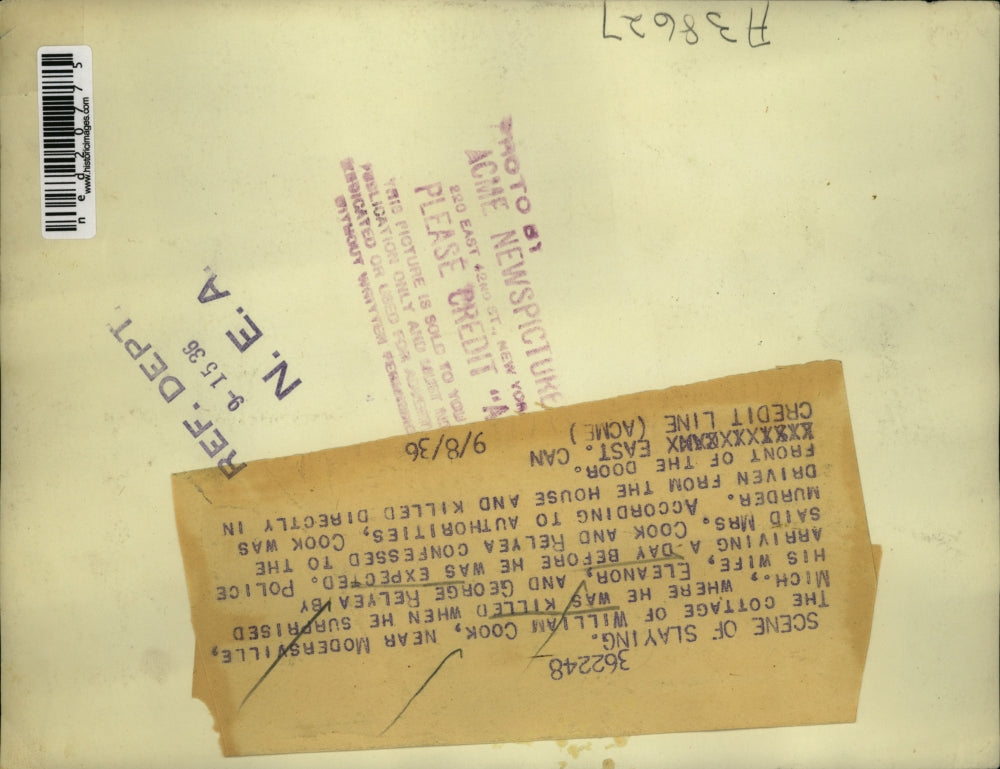 A38627
ned20775
www.historicimages.com
PHOTO BY
ACME NEWSPICTURE
220 EAST 42ND ST., NEW YORK
PLEASE CREDIT "A
THIS PICTURE IS SOLD TO YOU
PUBLICATION ONLY AND MUST NO
SYNDICATED OR USED FOR ADVERT
WITHOUT WRITTEN PERMISSION
REF. DEPT.
9-15 36
N. E. A.
362248
SCENE OF SLAYING.
THE COTTAGE OF WILLIAM COOK, NEAR MODERSVILLE,
MICH., WHERE HE WAS KILLED WHEN HE SURPRISED
HIS WIFE, ELEANOR, AND GEORGE RELYEA BY
ARRIVING A DAY BEFORE HE WAS EXPECTED. POLICE
SAID MRS. COOK AND RELYEA CONFESSED TO THE
MURDER. ACCORDING TO AUTHORITIES, COOK WAS
DRIVEN FROM THE HOUSE AND KILLED DIRECTLY IN
FRONT OF THE DOOR.
EAST. CAN
CREDIT LINE (ACME) 9/8/36